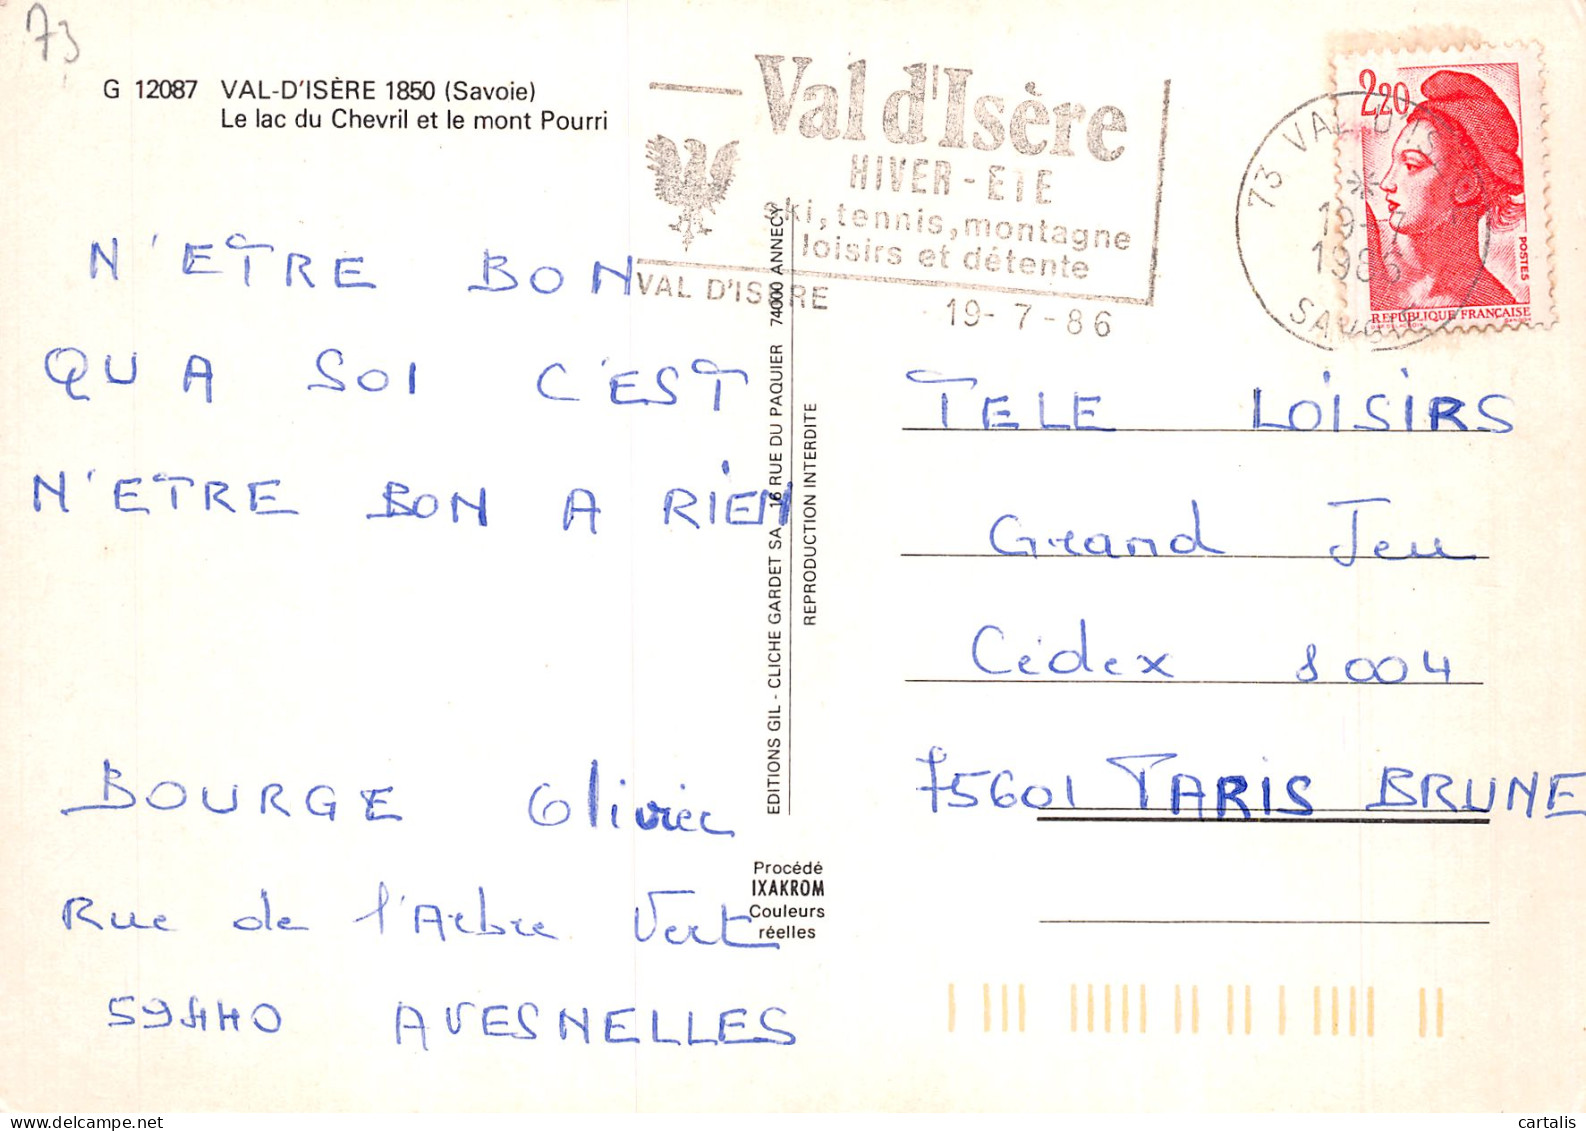 73
G 12087 VAL-D'ISÈRE 1850 (Savoie)
Le lac du Chevril et le mont Pourri
Val d'Isère
HIVER - ETE
ski, tennis, montagne
loisirs et détente
VAL D'ISERE
19-7-86
73 VAL D'IS
19-7
1986
SAVOIE
2,20
POSTES
REPUBLIQUE FRANÇAISE
N'ETRE BON
QU A SOI C'EST
N'ETRE BON A RIEN
BOURGE Olivier
Rue de l'Arbre Vert
59440 AVESNELLES
EDITIONS GIL - CLICHE GARDET SA 16 RUE DU PAQUIER 74000 ANNECY
REPRODUCTION INTERDITE
Procédé
IXAKROM
Couleurs
réelles
TELE LOISIRS
Grand Jeu
Cédex 8004
75601 PARIS BRUNE
cartalis